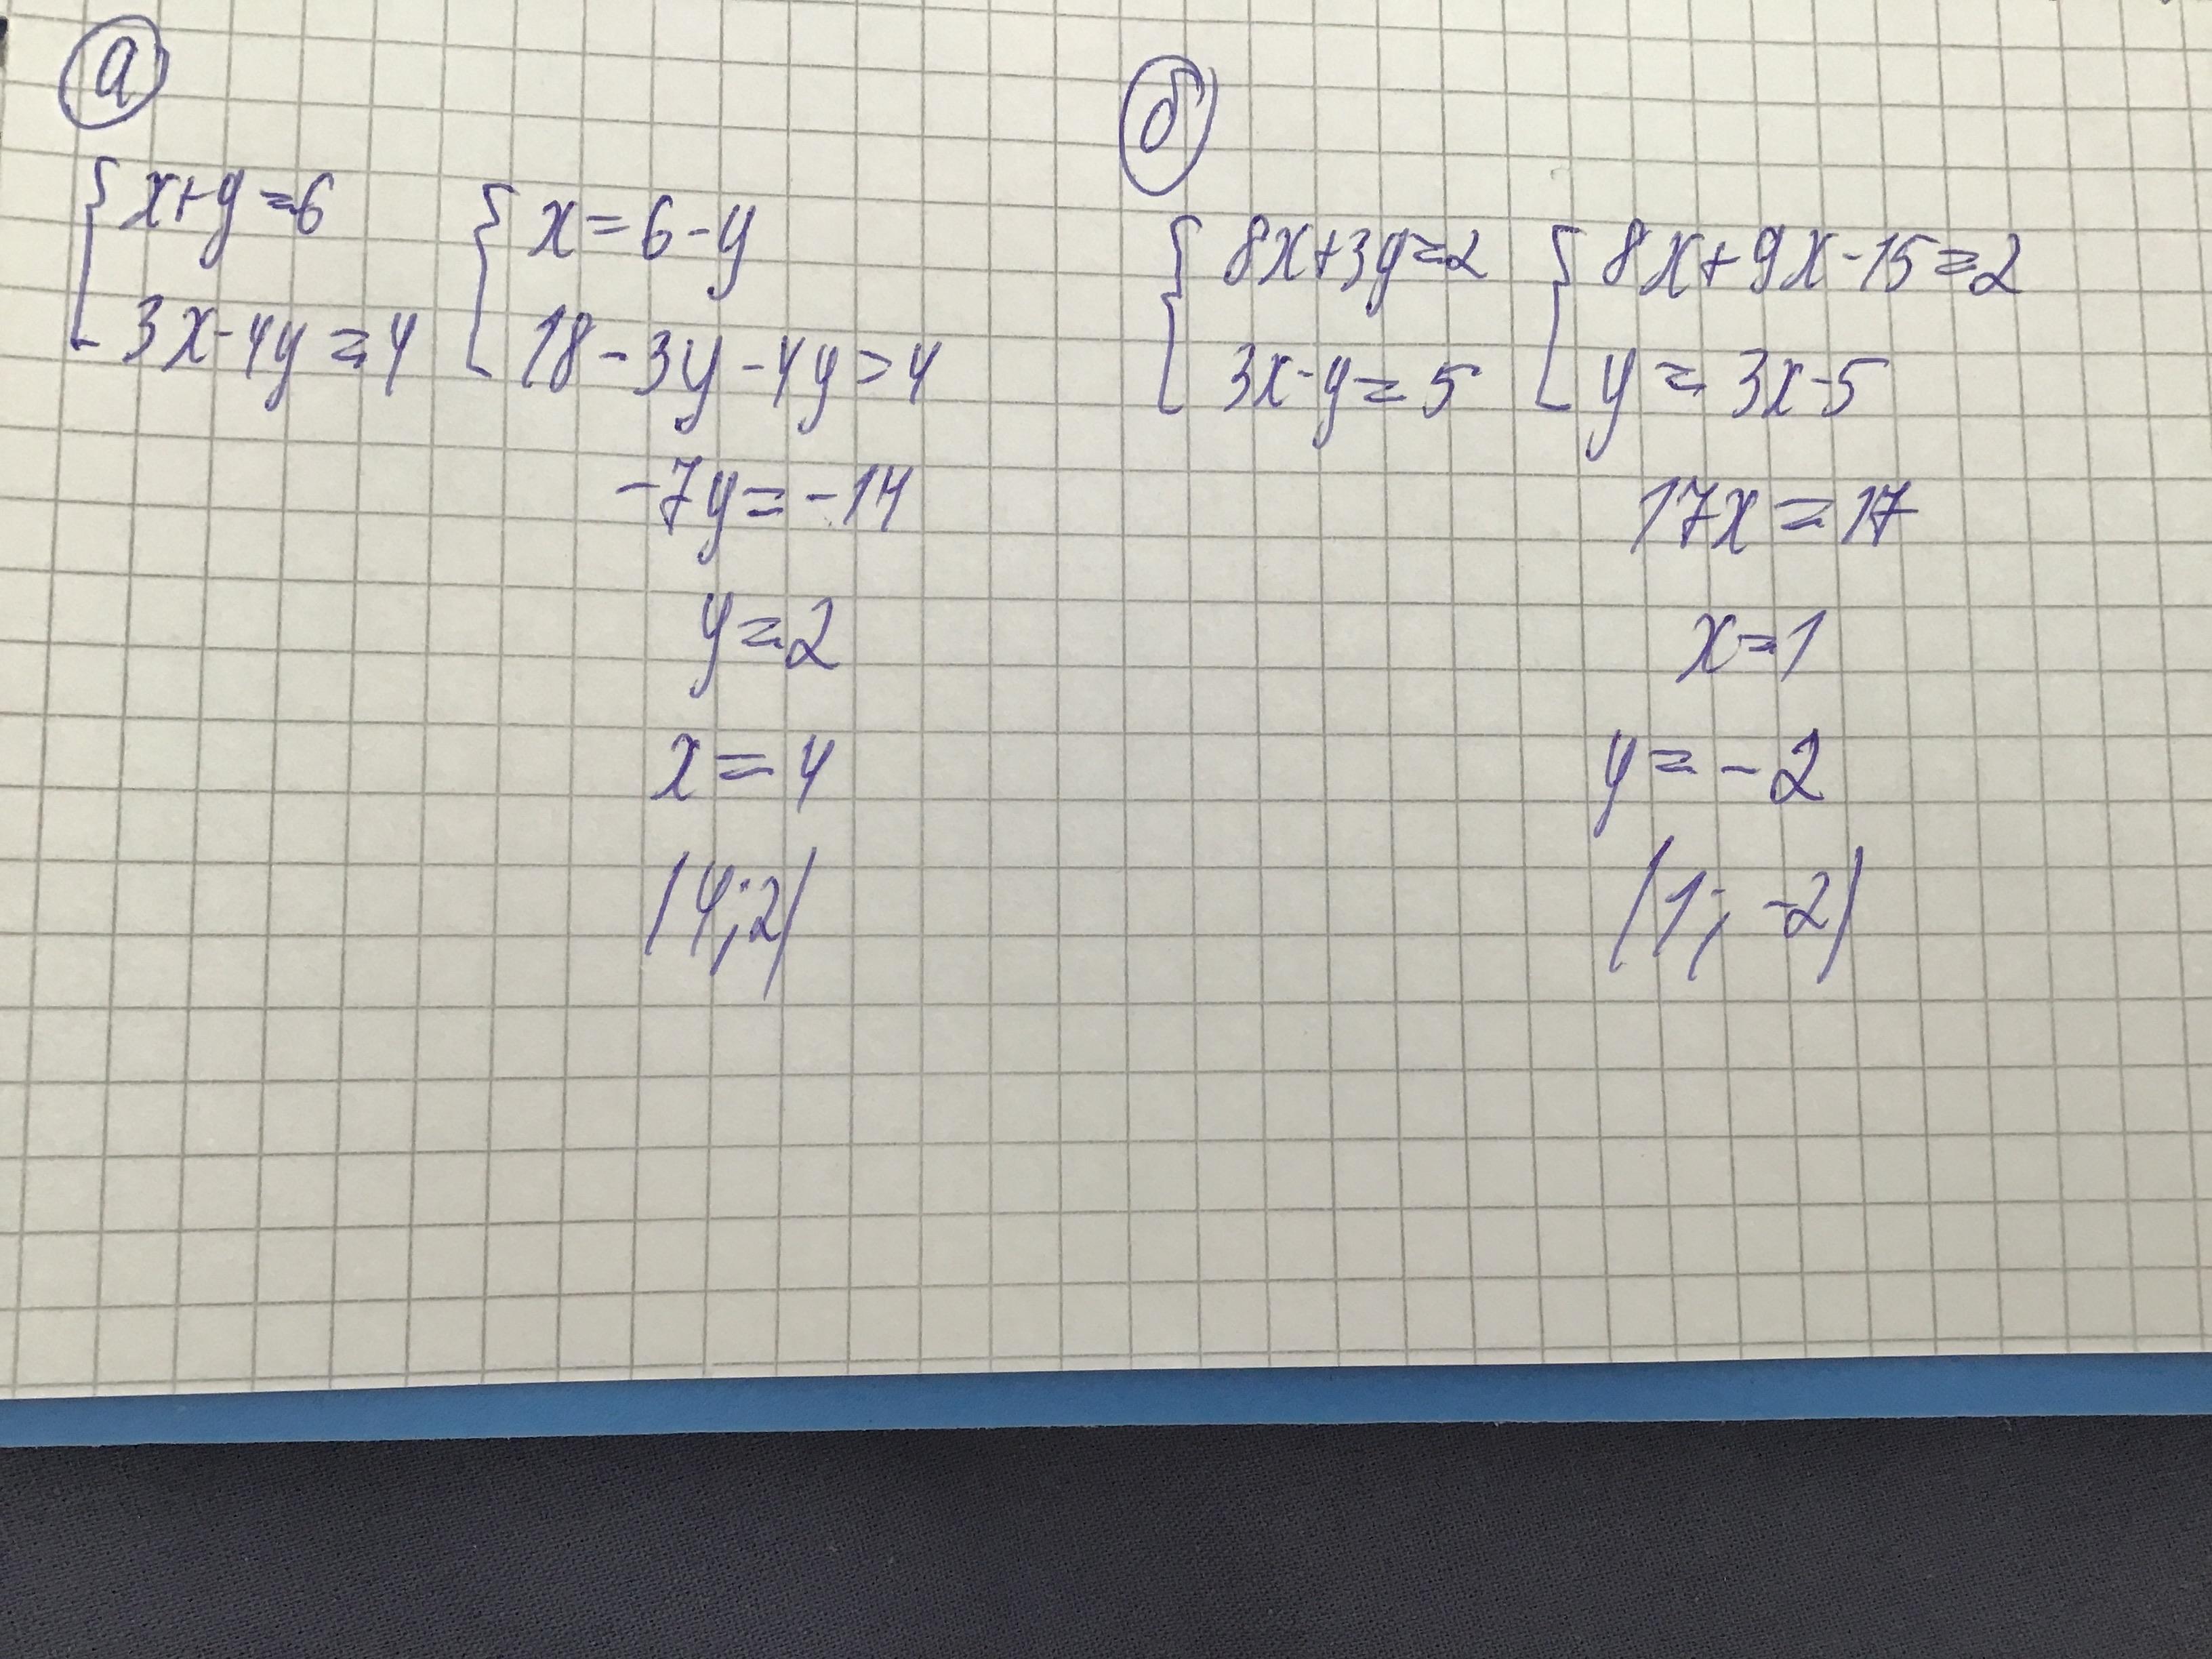 а
x+y=6
3x-4y=4
x=6-y
18-3y-4y=4
-7y=-14
y=2
x=4
(4;2)
б
8x+3y=2
3x-y=5
8x+9x-15=2
y=3x-5
17x=17
x=1
y=-2
(1;-2)